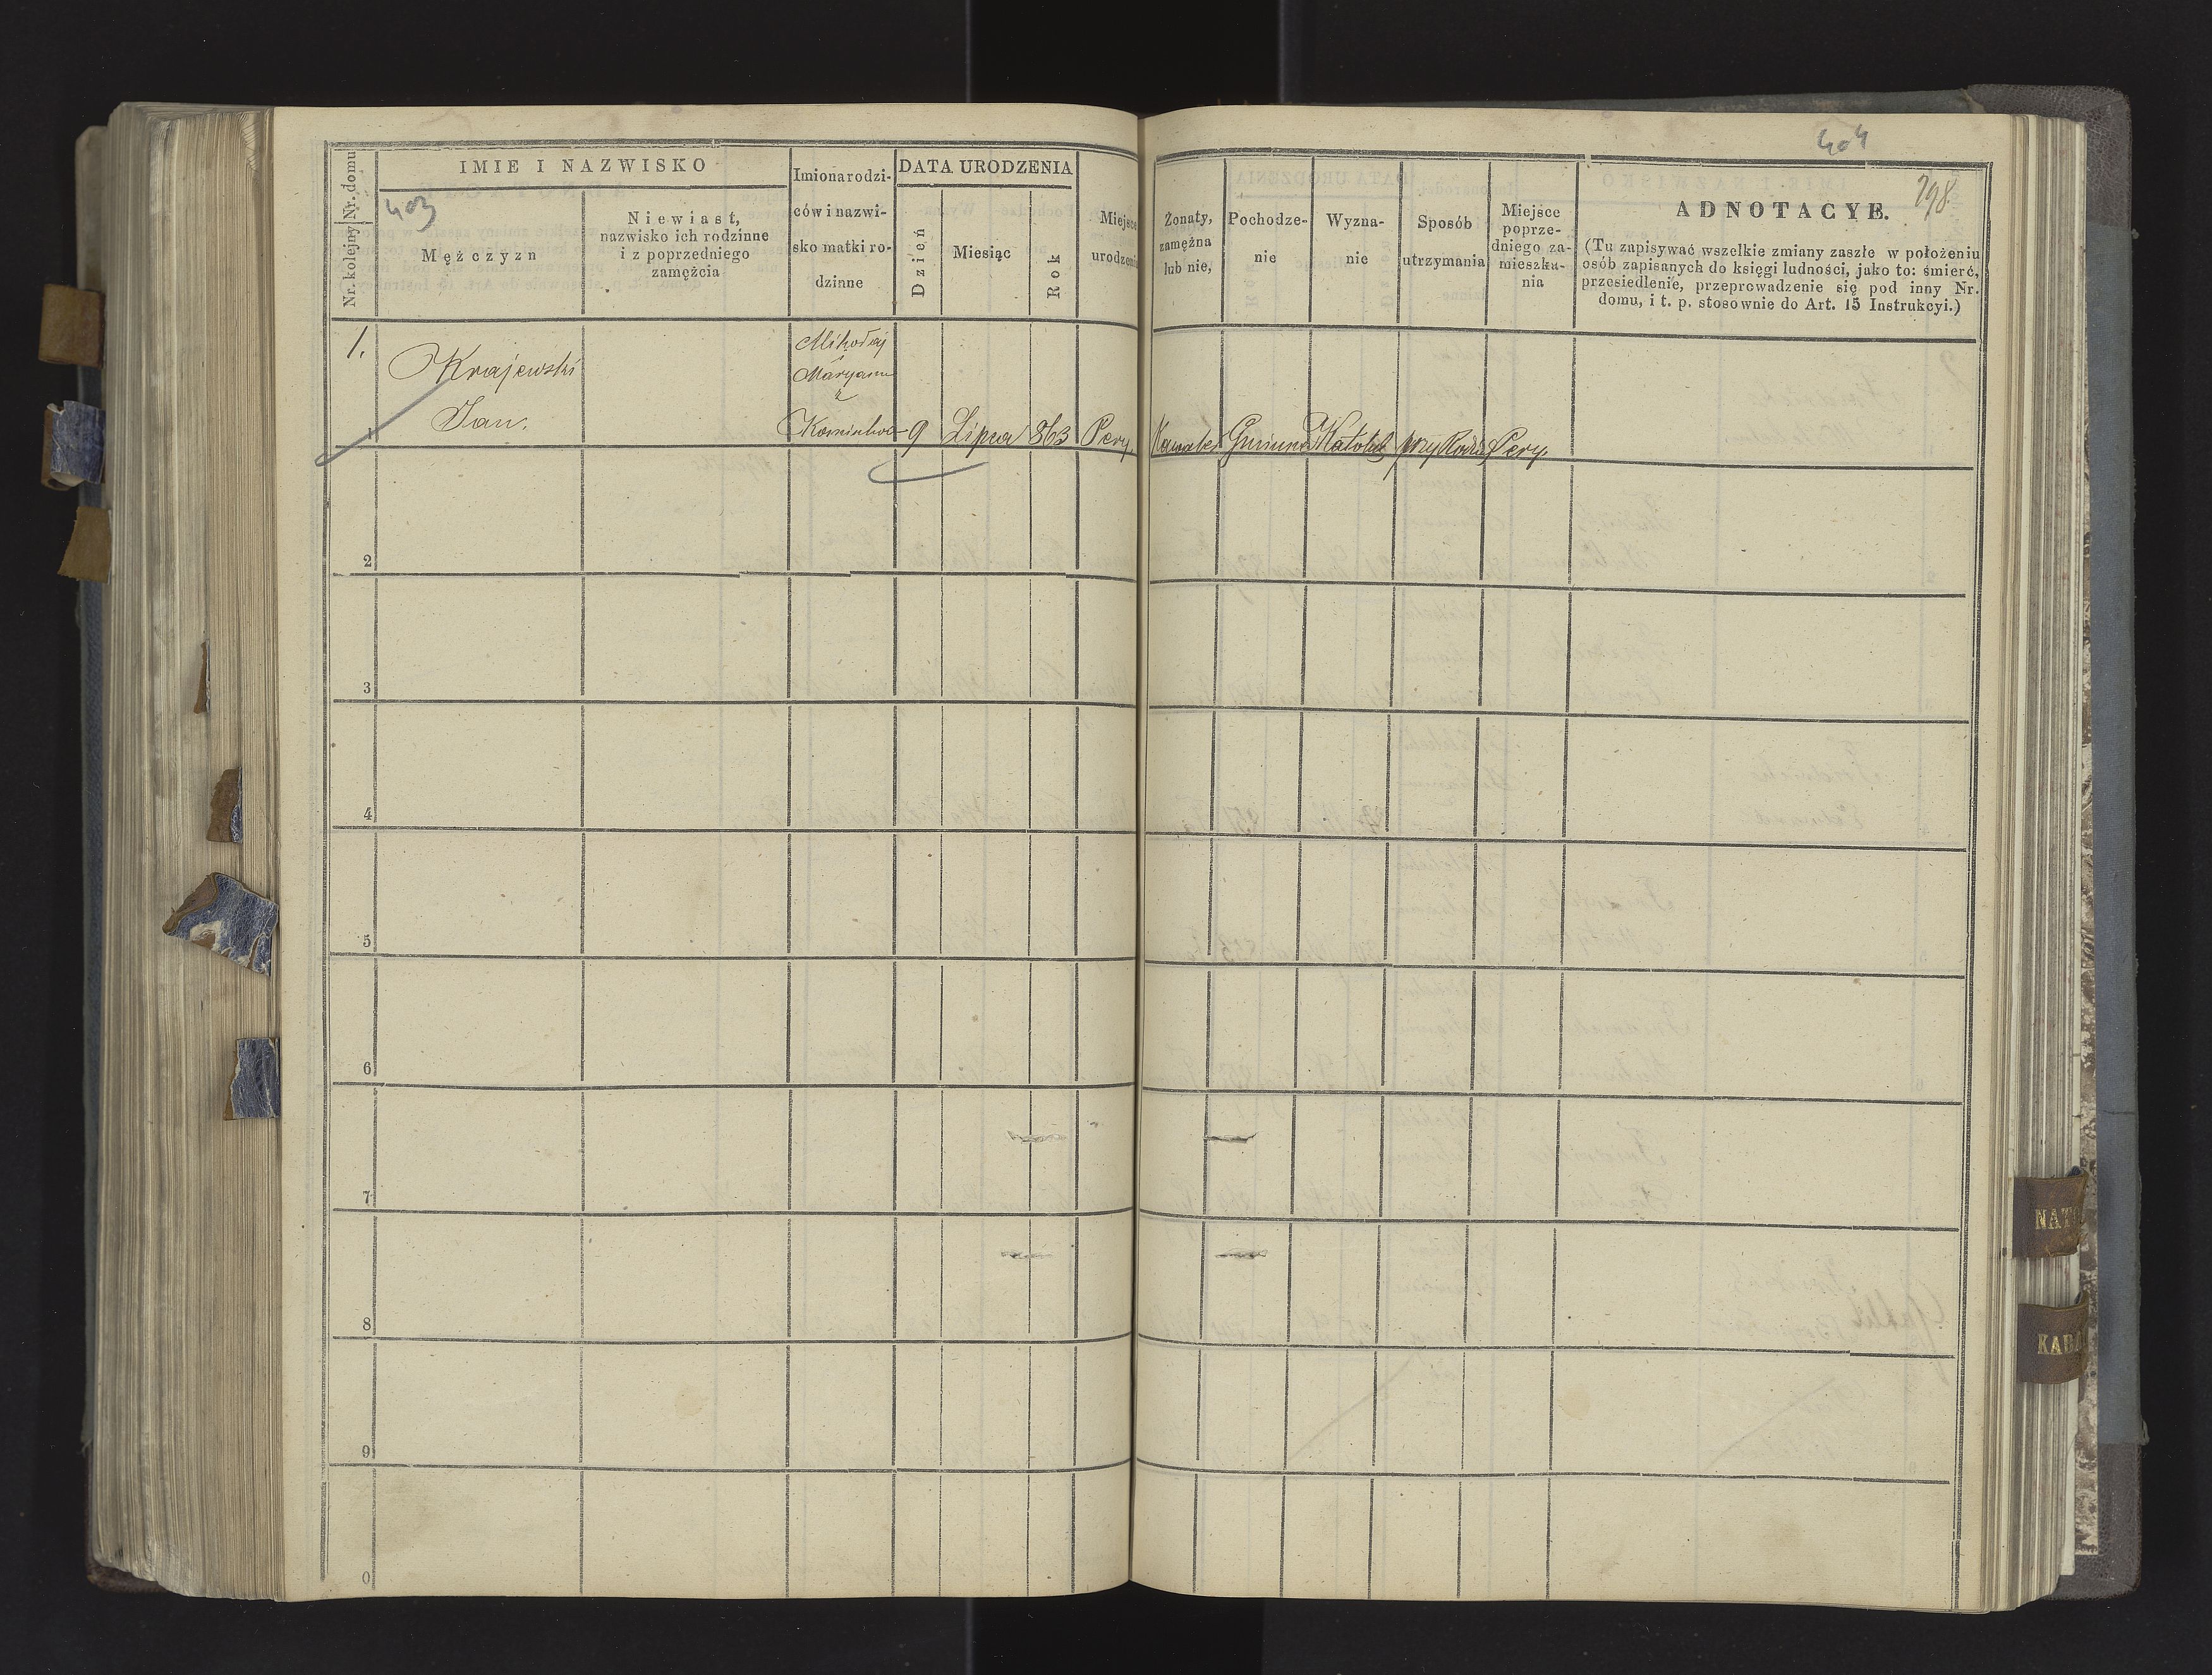 404
403
798
Nr. kolejny Nr. domu
IMIE I NAZWISKO
Mężczyzn
Niewiast,
nazwisko ich rodzinne
i z poprzedniego
zamężcia
Imiona rodzi-
ców i nazwi-
sko matki ro-
dzinne
DATA URODZENIA
Dzień
Miesiąc
Rok
Miejsce
urodzenia
Żonaty,
zamężna
lub nie,
Pochodze-
nie
Wyzna-
nie
Sposób
utrzymania
Miejsce
poprze-
dniego za-
mieszka-
nia
ADNOTACYE.
(Tu zapisywać wszelkie zmiany zaszłe w położeniu
osób zapisanych do księgi ludności, jako to: śmierć,
przesiedlenie, przeprowadzenie się pod inny Nr.
domu, i t. p. stosownie do Art. 15 Instrukcyi.)
1.
Krajewski
Jan.
Mikołaj
Maryanna
z
9 Lipca 863 Pery.
Kawaler Gminne Katolik przy Rodz Pery.
1
2
3
4
5
6
7
8
9
0
NAT
KABA